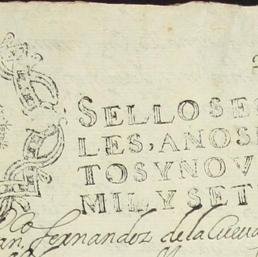 SELLO SE
LES, ANOS
TOS Y NOV
MIL Y SET
fernandez de la Cueva